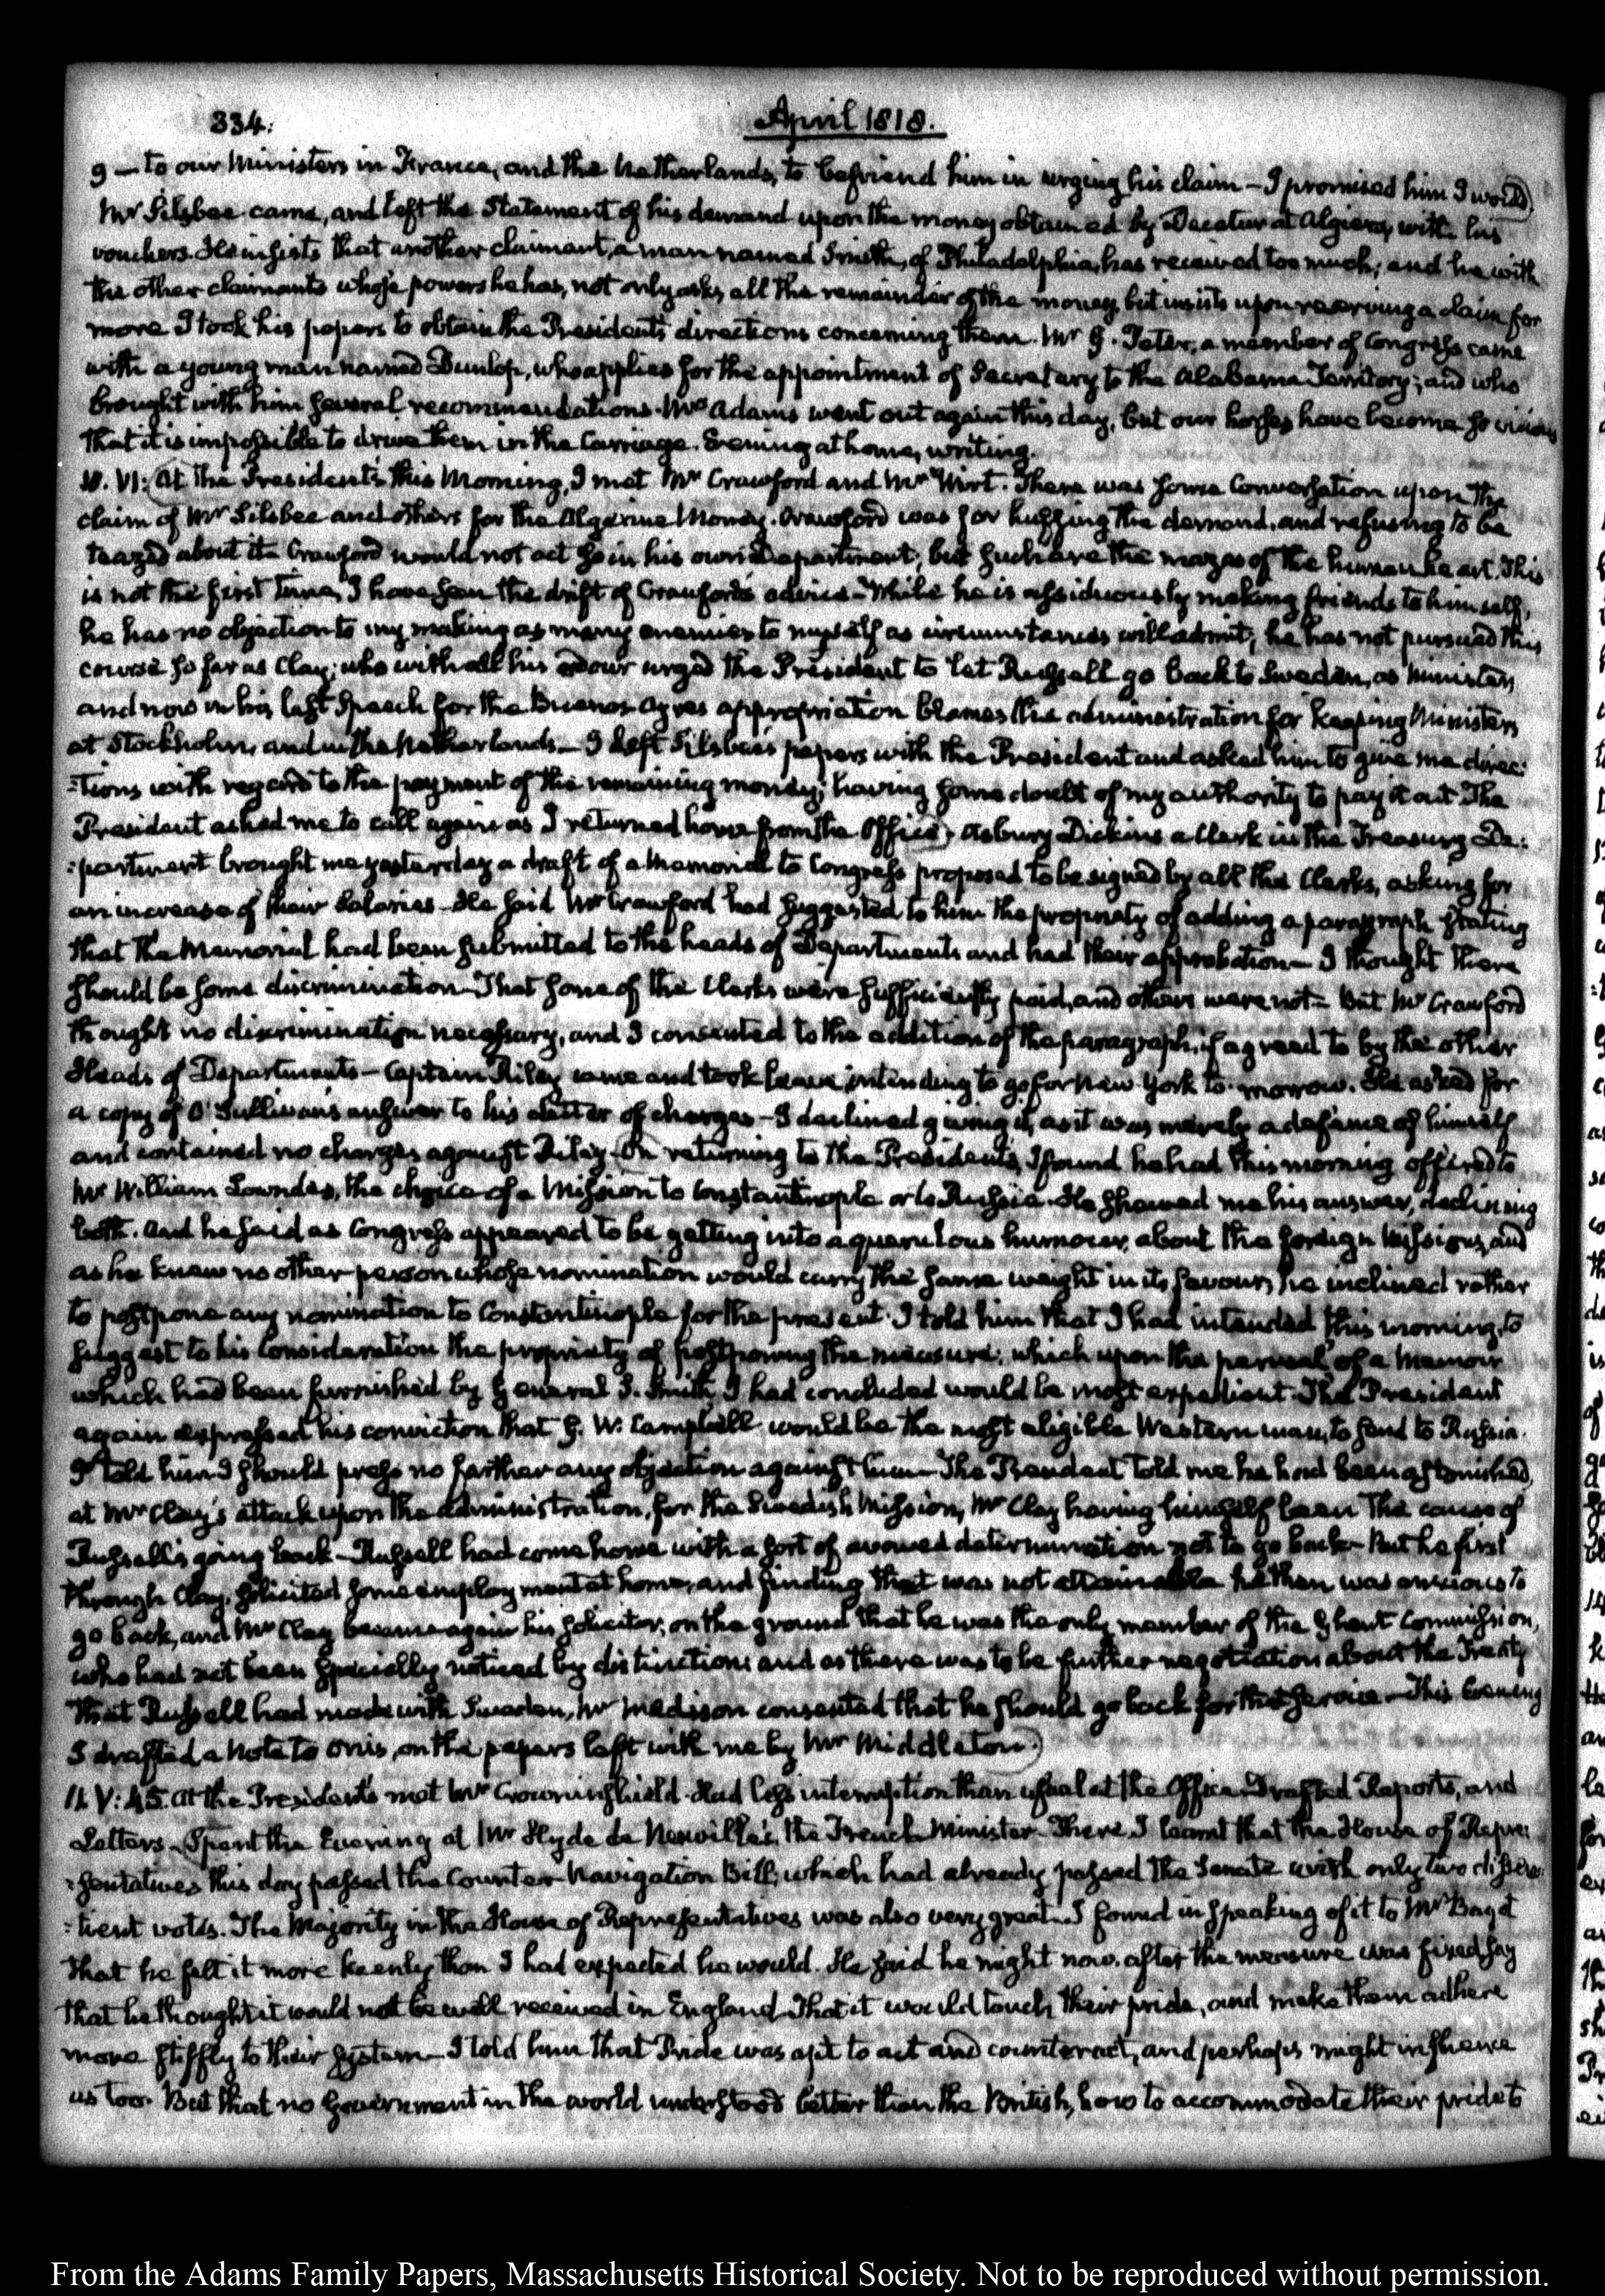 334.
April 1818.
9 — to our Ministers in France, and the Netherlands, to befriend him in urging his claim — I promised him I would.
Mr Silsbee came, and left the Statement of his demand upon the money obtained by Decatur at Algiers, with his
vouchers. He insists that another claimant, a man named Smith, of Philadelphia, has received too much; and he with
the other claimants whose powers he has, not only asks all the remainder of the money, but insists upon reserving a claim for
more I took his papers to obtain the President's directions concerning them. Mr G. Peter, a member of Congress came
with a young man named Dunlop, who applies for the appointment of Secretary to the Alabama Territory; and who
brought with him several recommendations. Mrs Adams went out again this day, but our horses have become so vicious
that it is impossible to drive them in the Carriage. Evening at home, writing.
10. VI: At the President's this Morning, I met Mr Crawford and Mr Wirt. There was some Conversation upon the
claim of Mr Silsbee and others for the Algerine Money. Crawford was for huffing the demand, and refusing to be
teazed about it — Crawford would not act so in his own Department; but such are the mazes of the human heart. This
is not the first time, I have seen the drift of Crawford's advice — While he is assiduously making friends to himself,
he has no objection to my making as many enemies to myself as circumstances will admit; he has not pursued this
course so far as Clay; who with all his ardour urged the President to let Russell go back to Sweden, as Minister,
and now in his last Speech for the Buenos Ayres appropriation blames the administration for keeping Ministers
at Stockholm, and in the Netherlands — I left Silsbee's papers with the President and asked him to give me direc:
:tions with regard to the payment of the remaining money; having some doubt of my authority to pay it out. The
President asked me to call again as I returned home from the Office. Asbury Dickins a Clerk in the Treasury De:
:partment brought me yesterday a draft of a Memorial to Congress proposed to be signed by all the Clerks, asking for
an increase of their Salaries — He said Mr Crawford had suggested to him the propriety of adding a paragraph stating
that the Memorial had been submitted to the heads of Departments and had their approbation — I thought there
should be some discrimination — That some of the Clerks were sufficiently paid, and others were not — But Mr Crawford
thought no discrimination necessary, and I consented to the addition of the paragraph, if agreed to by the other
Heads of Departments — Captain Riley came and took leave intending to go for New York to-morrow. He asked for
a copy of O'Sullivan's answer to his letter of charges — I declined giving it, as it was merely a defence of himself
and contained no charges against Riley — On returning to the President's, I found he had this morning offered to
Mr William Lowndes, the choice of a Mission to Constantinople or to Russia. He shewed me his answer, declining
both. And he said as Congress appeared to be getting into a querulous humour, about the foreign Missions, and
as he knew no other person whose nomination would carry the same weight in its favour, he inclined rather
to postpone any nomination to Constantinople for the present. I told him that I had intended this morning to
suggest to his Consideration the propriety of postponing the measure; which upon the perusal of a Memoir
which had been furnished by General S. Smith, I had concluded would be most expedient. The President
again expressed his conviction that G. W. Campbell would be the most eligible Western man, to send to Russia.
I told him I should press no farther any objection against him — The President told me he had been astonished,
at Mr Clay's attack upon the administration, for the Swedish Mission, Mr Clay having himself been the cause of
Russell's going back — Russell had come home with a sort of avowed determination not to go back — But he first
through Clay, solicited some employment at home, and finding that was not attainable he then was anxious to
go back, and Mr Clay became again his solicitor, on the ground that he was the only member of the Ghent Commission,
who had not been specially noticed by distinction; and as there was to be further negotiation about the Treaty
that Russell had made with Sweden, Mr Madison consented that he should go back for that service — This Evening
I drafted a Note to Onis, on the papers left with me by Mr Middleton.
11. V:45. At the President's met Mr Crowninshield. Had less interruption than usual at the Office. Drafted Reports, and
Letters — Spent the Evening at Mr Hyde de Neuville's, the French Minister — There I learnt that the House of Repre:
:sentatives this day passed the Counter-Navigation Bill; which had already passed the Senate with only two dissen:
:tient votes. The Majority in the House of Representatives was also very great. I found in speaking of it to Mr Bagot
that he felt it more keenly than I had expected he would. He said he might now, after the measure was fixed say
that he thought it would not be well received in England — That it would touch their pride, and make them adhere
more stiffly to their system — I told him that Pride was apt to act and counteract, and perhaps might influence
us too. But that no Government in the world understood better than the British, how to accommodate their pride to
From the Adams Family Papers, Massachusetts Historical Society. Not to be reproduced without permission.